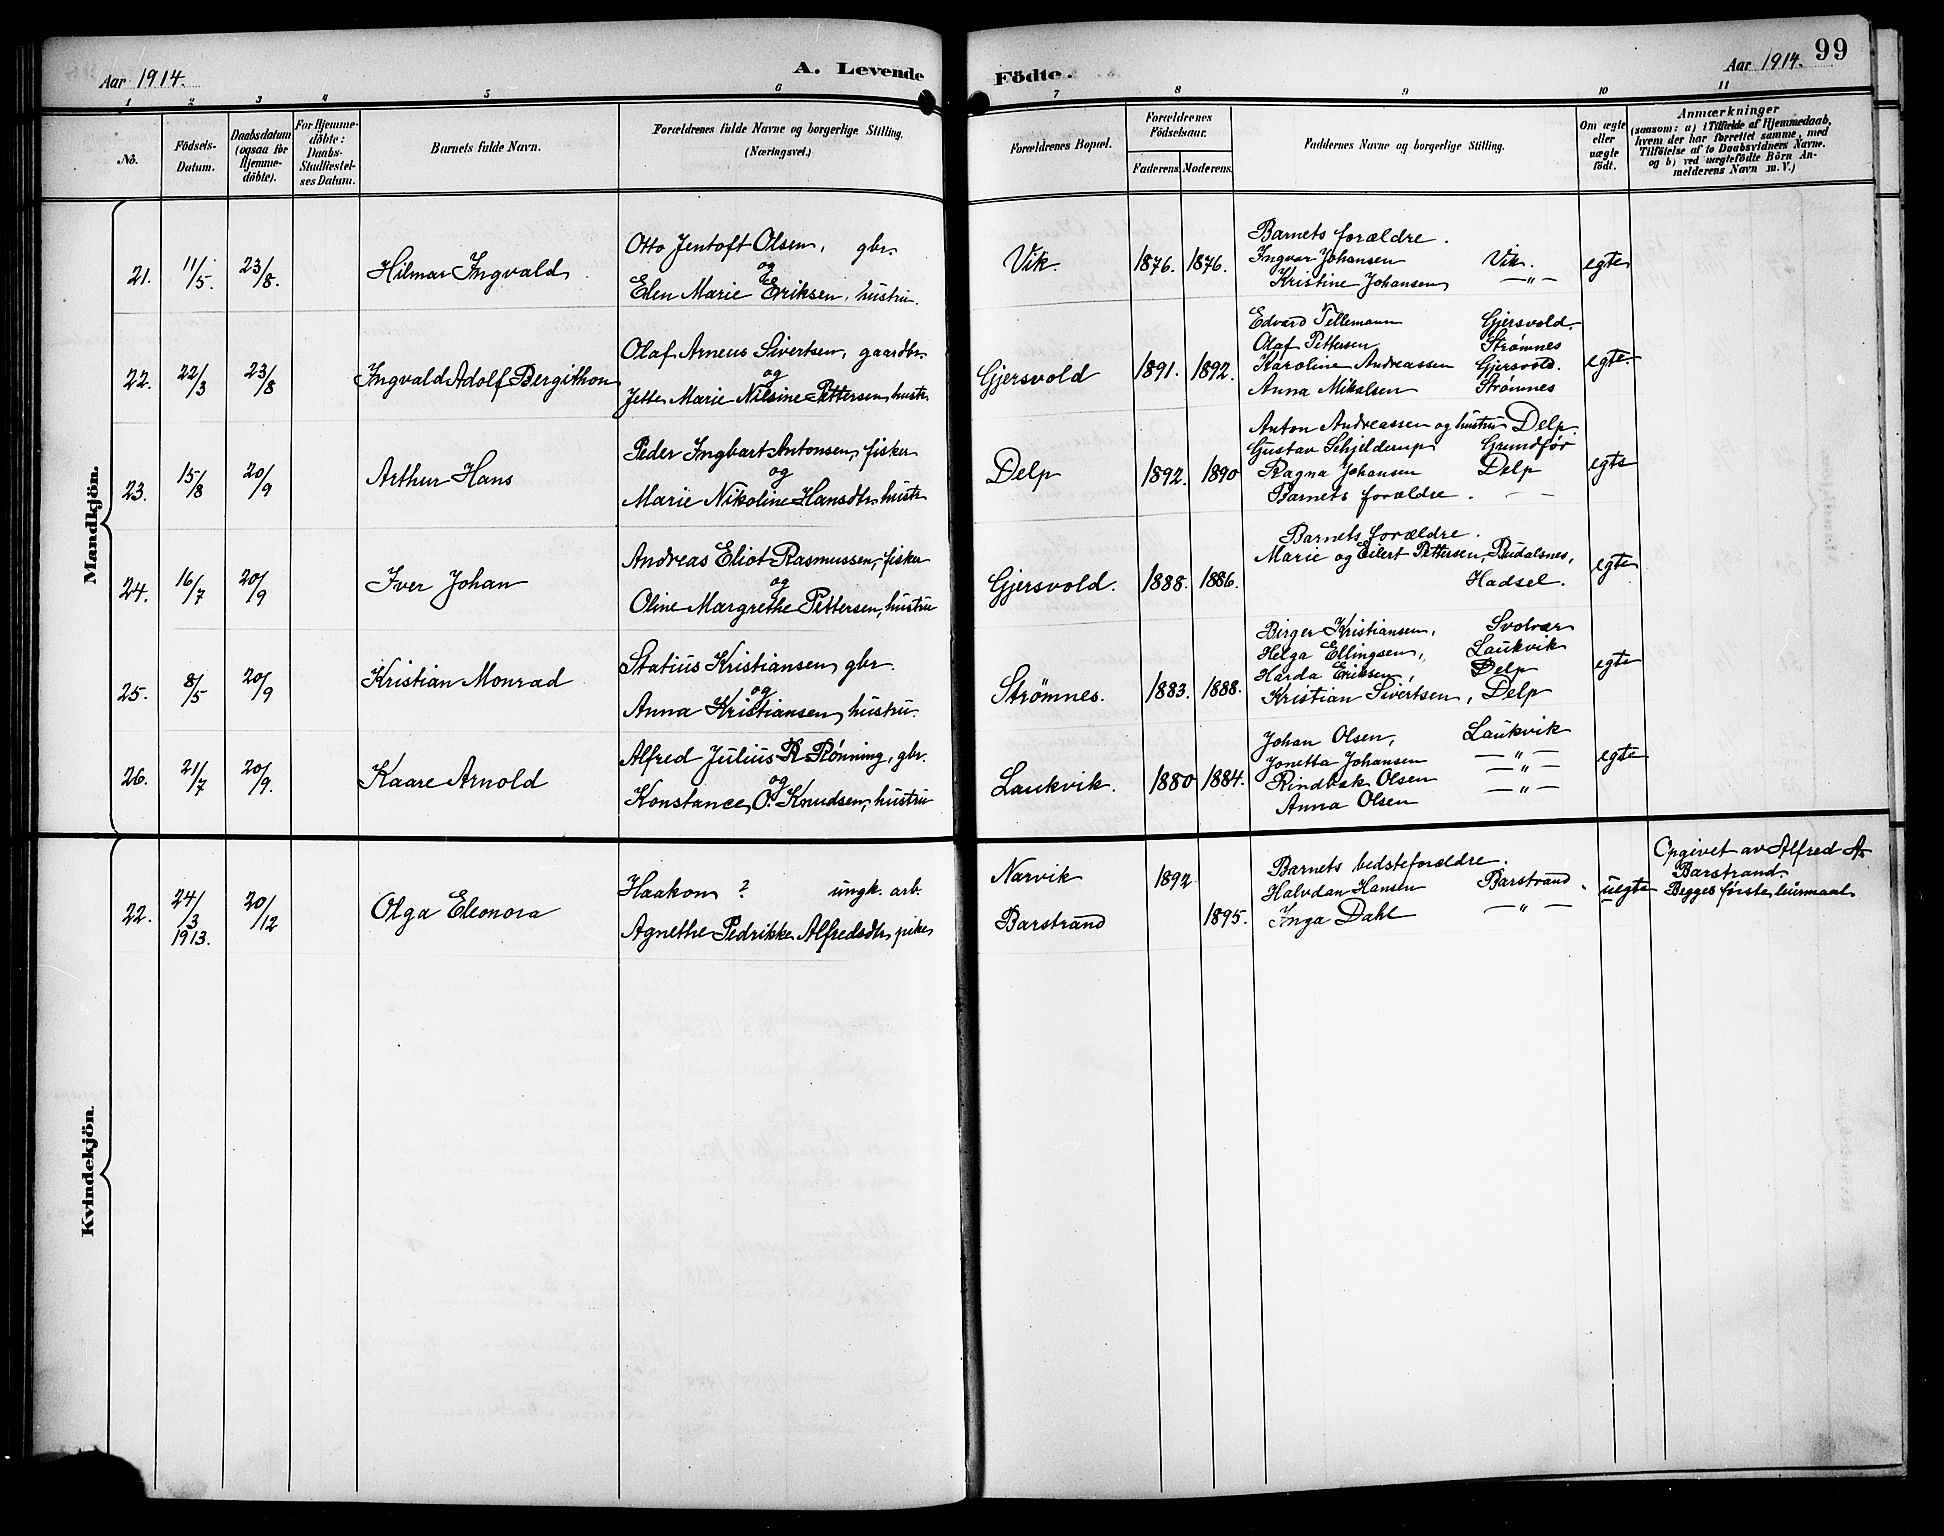 Aar 1914.
A. Levende
Födte.
Aar 1914.
99
1 2 3 4 5 6 7 8 9 10 11
No.
Födsels-
Datum.
Daabsdatum
(ogsaa for
Hjemme-
döbte).
For Hjemme-
döbte:
Daabs-
Stadfæstel-
ses Datum.
Barnets fulde Navn.
Forældrenes fulde Navne og borgerlige Stilling.
(Næringsvei.)
Forældrenes Bopæl.
Forældrenes
Födselsaar.
Faderens.
Moderens.
Faddernes Navne og borgerlige Stilling.
Om ægte
eller
uægte
födt.
Anmærkninger
(saasom: a) i Tilfælde af Hjemmedaab,
hvem der har forrettet samme, med
Tilföielse af to Daabsvidners Navne.
og b) ved uægtefödte Börn An-
melderens Navn m. V.)
Mandkjön.
21. 11/5. 23/8. Hilmar Ingvald
Otto Jentoft Olsen, gbr.
og
Elen Marie Eriksen, hustru.
Vik. 1876. 1876.
Barnets forældre.
Ingvar Johansen Vik.
Kristine Johansen —"—
egte
22. 22/3 23/8 Ingvald Adolf Bergithon
Olaf Arneus Sivertsen, gaardbr.
og
Jette Marie Nilsine Pettersen, hustr.
Gjersvold 1891. 1892.
Edvard Tellemann Gjersvold.
Olaf Pettersen, Strømnes
Karoline Andreassen Gjersvold.
Anna Mikalsen Strømnes
egte
23. 15/8 20/9 Arthur Hans
Peder Ingbart Antonsen, fisker
og
Marie Nikoline Hansdtr. hustr
Delp 1892. 1890
Anton Andreassen og hustru Delp.
Gustav Schjelderup Grundfør
Ragna Johansen Delp
Barnets forældre. — —
egte
24. 16/7 20/9 Iver Johan
Andreas Eliot Rasmussen, fisker
og
Oline Margrethe Pettersen, hustru
Gjersvold. 1888. 1886.
Barnets forældre.
Marie og Eilert Pettersen, Budalsnes,
Hadsel.
egte
25. 8/5 20/9 Kristian Monrad
Statius Kristiansen gbr.
og
Anna Kristiansen, hustru.
Strømnes. 1883. 1888.
Birger Kristiansen, Svolvær
Helga Ellingsen, Laukvik
Harda Eriksen, Delp
Kristian Sivertsen, Delp
egte
26. 21/7 20/9. Kaare Arnold
Alfred Julius R Rønning, gbr.
og
Konstance O. Knudsen, hustru
Laukvik. 1880 1884.
Johan Olsen, Laukvik
Jonetta Johansen —"—
Rindbak Olsen —"—
Anna Olsen —"—
egte
Kvindekjön.
22. 24/3 1913. 20/12 Olga Eleonora
Haakon ? ungk. arb.
Agnethe Pedrikke Alfredsdtr. pike
Narvik 1892
Barstrand 1895.
Barnets bedsteforældre.
Halvdan Hansen Barstrand.
Inga Dahl —"—
uegte
Opgivet av Alfred A.
Barstrand.
Begges første leiermaal